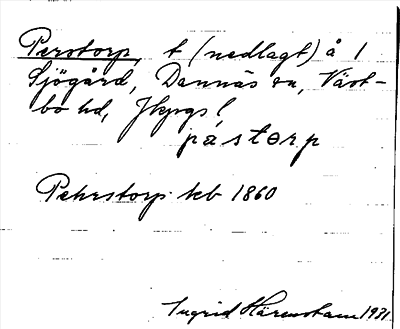 Perstorp, t (nedlagt) å 1
Sjögård, Dannäs sn, Väst-
bo hd, Jkpgs l
pastorp
Pehrstorp. kb 1860
Ingrid Härenstam 1931